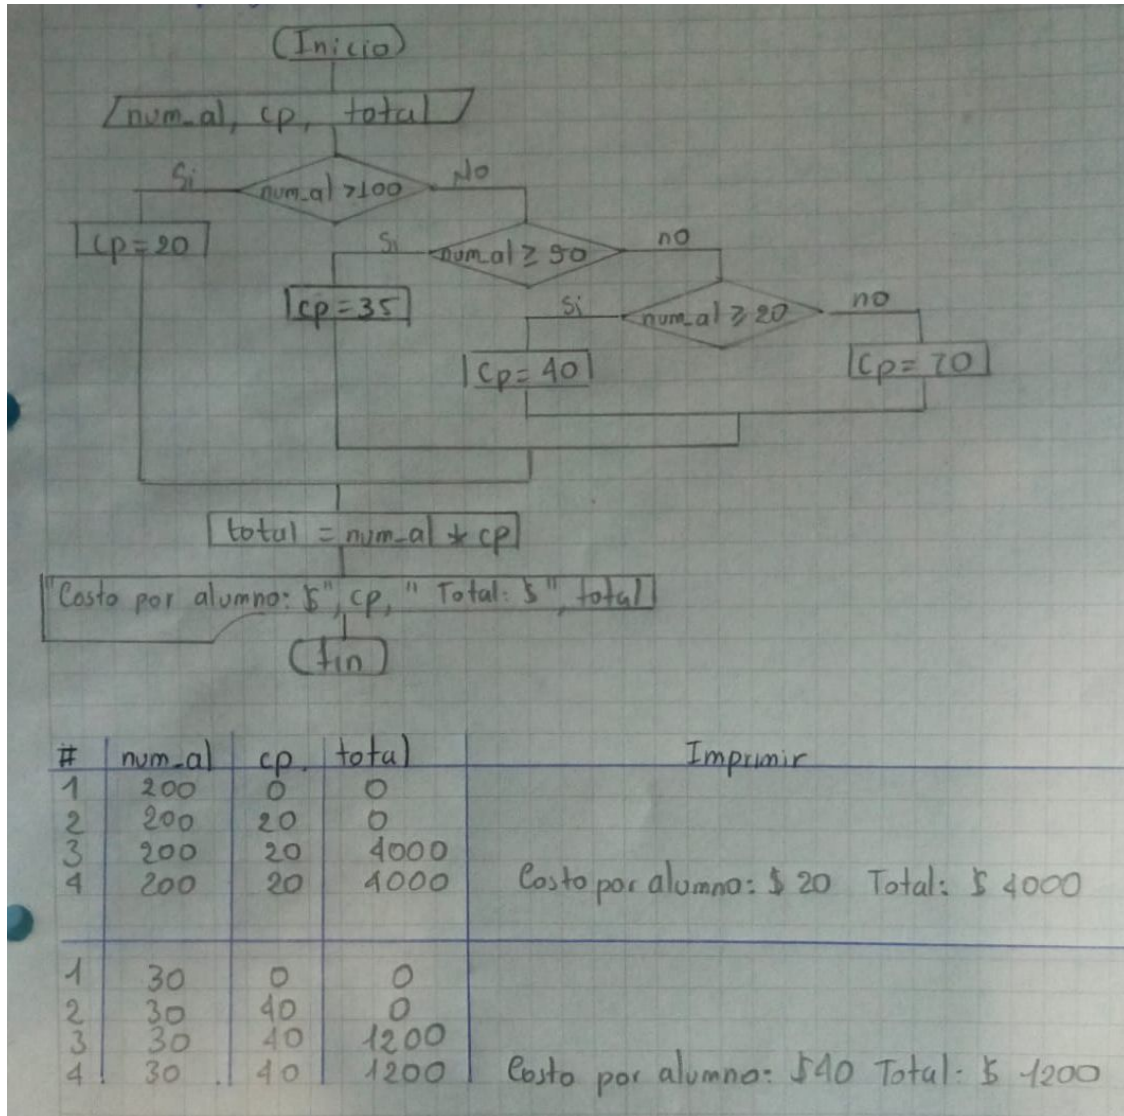 Inicio
num_al, cp, total
Si num_al >100 No
cp=20
Si num_al ≥ 50 no
cp=35
Si num_al ≥ 20 no
Cp= 40
Cp= 70
total = num_al * cp
"Costo por alumno: $", cp, " Total: $", total
fin
# num_al cp. total Imprimir
1 200 0 0
2 200 20 0
3 200 20 4000
4 200 20 4000 Costo por alumno: $ 20 Total: $ 4000
1 30 0 0
2 30 40 0
3 30 40 1200
4 30 40 1200 Costo por alumno: $40 Total: $ 1200